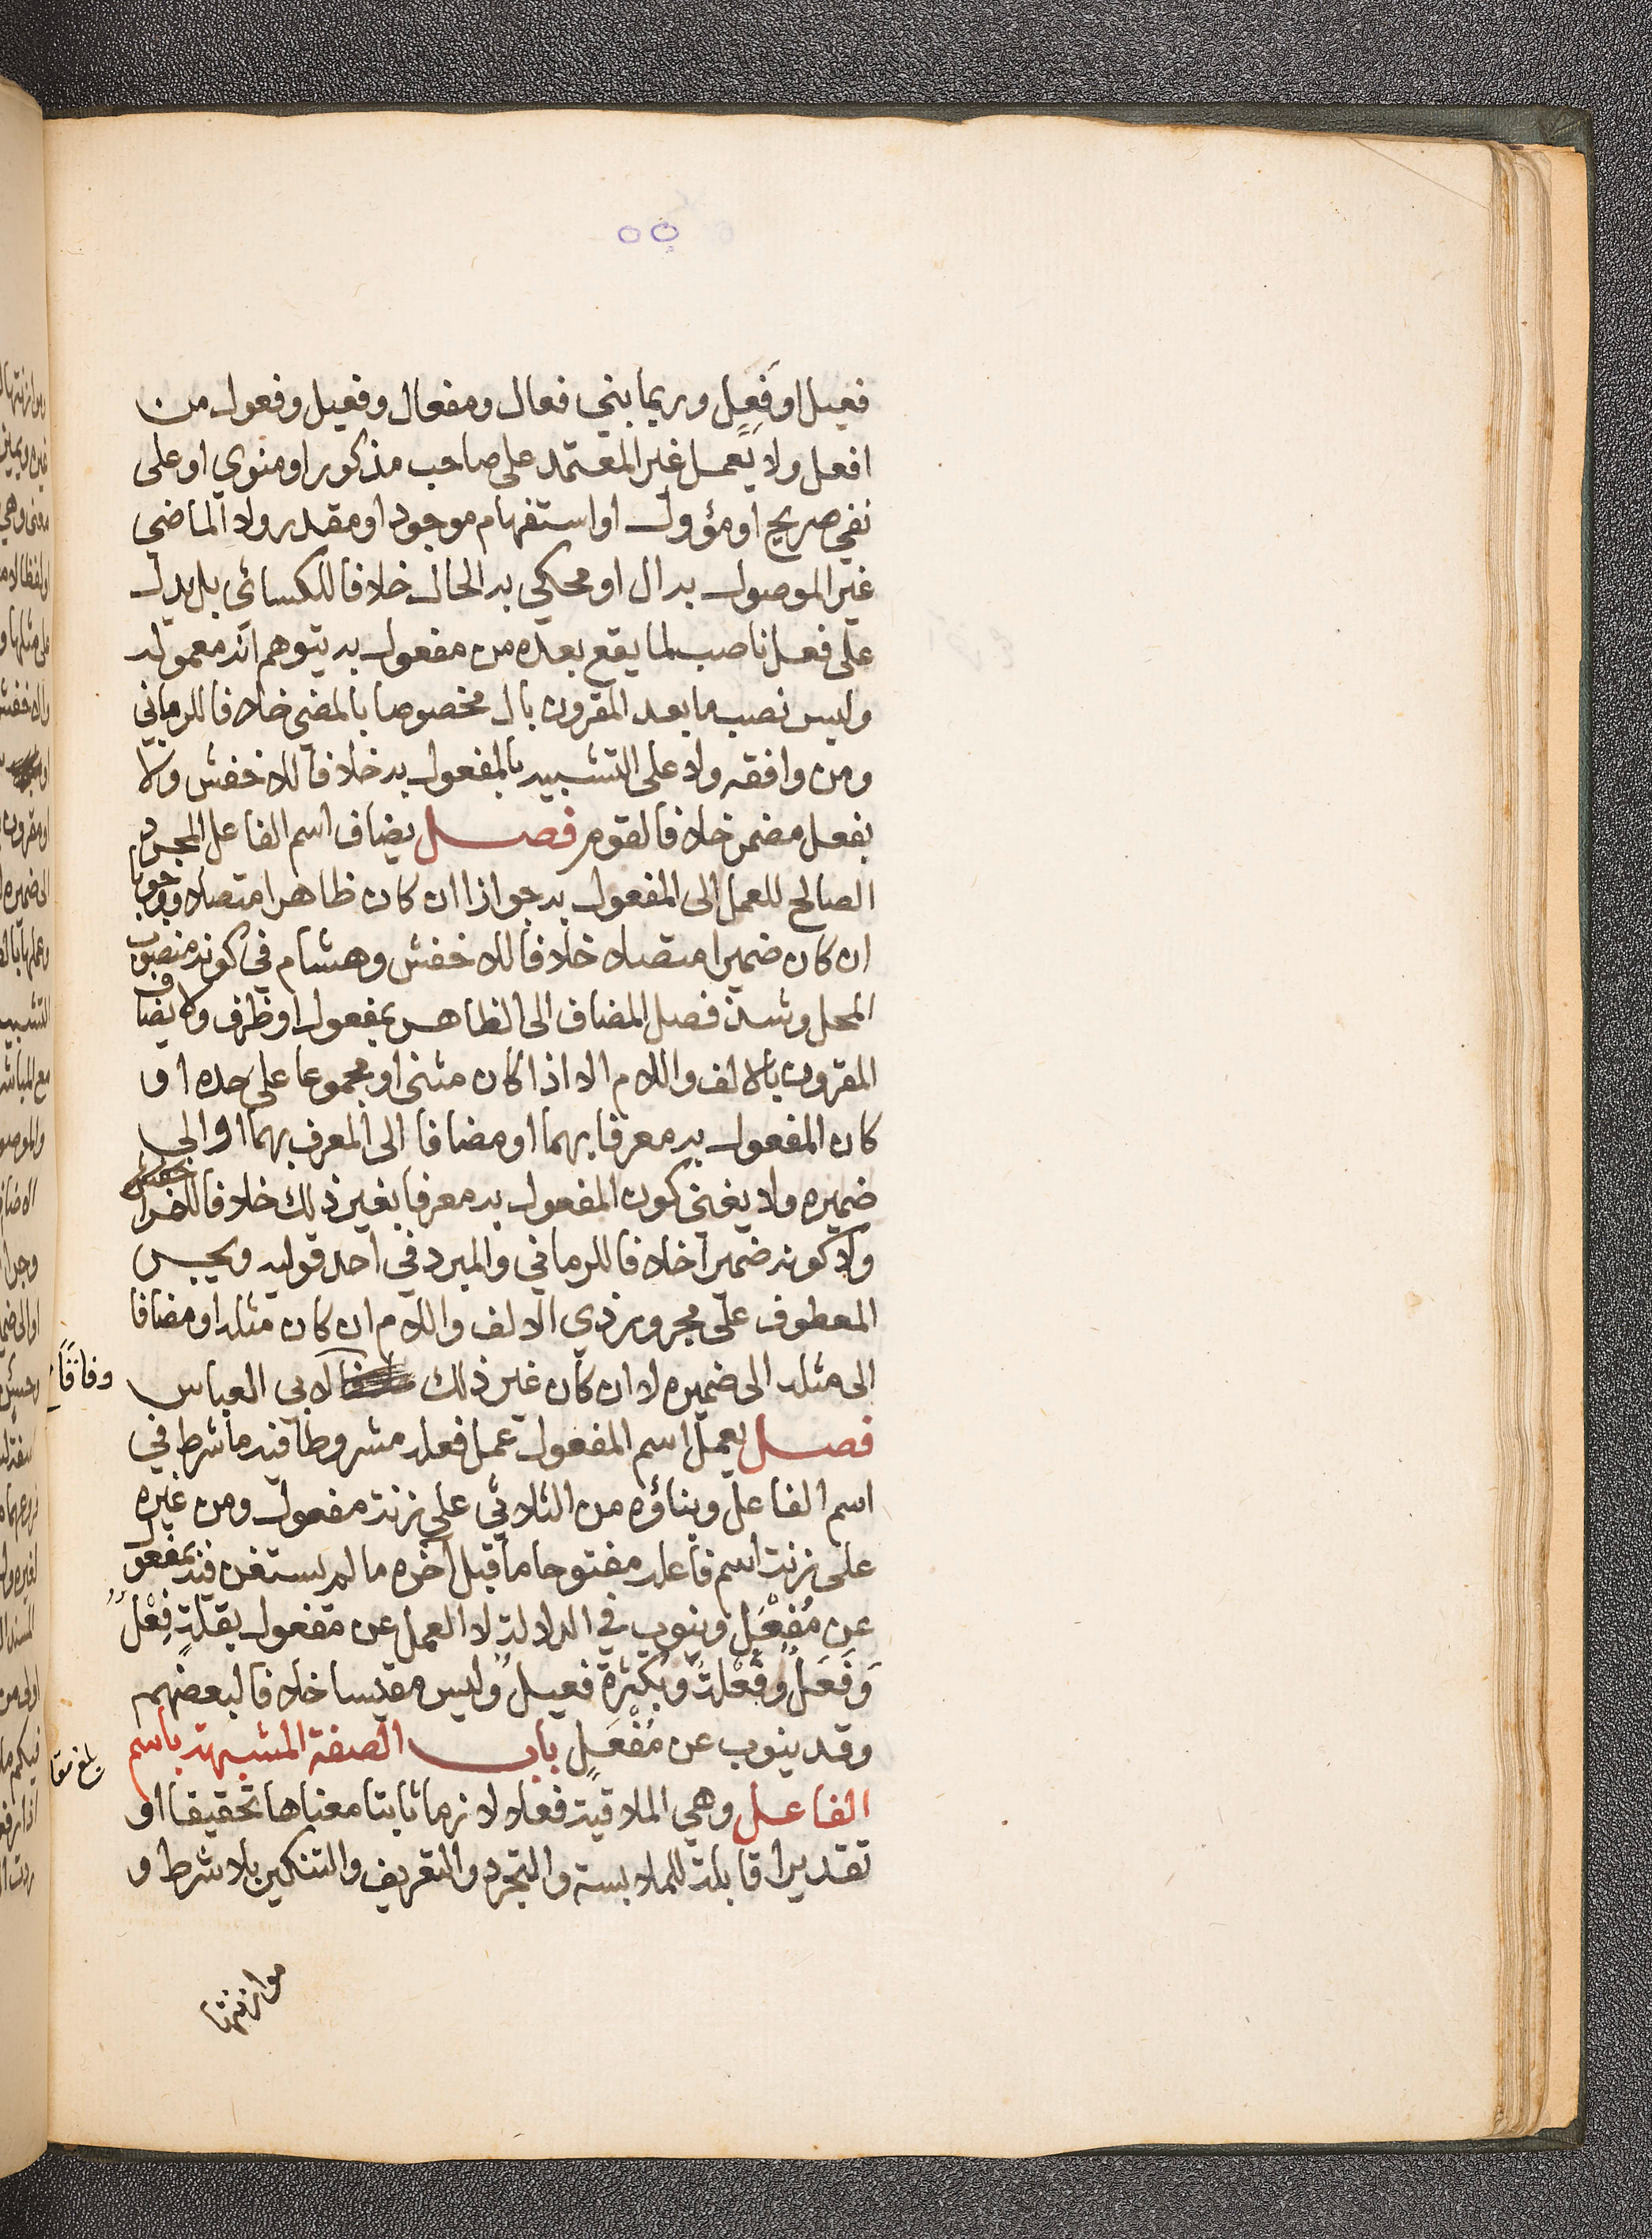 ٥٥
فعيل او فَعِل وربما بني فعال ومفعال وفعيل وفعول من
افعل ولا يَعمل غير المعتمد على صاحب مذكور او منوي او على
نفي صريح او مؤول او استفهام موجود او مقدر ولا الماضي
غير الموصول به ال او محكي به الحال خلافا للكسائي بل يدل
على فعل ناصب لما يقع بعده من مفعول به يتوهم انه معموله
وليس نصب ما بعد المقرون بال مخصوصا بالمضي خلافا للرماني
ومن وافقه ولا على التشبيه بالمفعول به خلافا للاخفش ولا
بفعل مضمر خلافا لقوم فصل يضاف اسم الفاعل المجرد
الصالح للعمل الى المفعول به جوازا ان كان ظاهرا متصلا ووجوبا
ان كان ضميرا متصلا خلافا للاخفش وهشام في كونه منصوب
المحل وشذ فصل المضاف الى الظاهر بمفعول او ظرف ولا يضاف
المقرون بالالف واللام الا اذا كان مثنى او مجموعا على حده او
كان المفعول به معرفا بهما او مضافا الى المعرف بهما او الى
ضميره ولا يغني كون المفعول به معرفا بغير ذلك خلافا للفرا
ولا كونه ضميرا خلافا للرماني والمبرد في احد قوليه ويجر
المعطوف على مجرور ذي الالف واللام ان كان مثله او مضافا
الى مثله الى ضميره لا ان كان غير ذلك لابي العباس
وفاقًا
فصل يعمل اسم المفعول عمل فعله مشروطا فيه ما شرط في
اسم الفاعل وبناؤه من الثلاثي على زنة مفعول ومن غيره
على زنة اسم فاعله مفتوحا ما قبل آخره ما لم يستغن فيه بمفعول
عن مُفْعَل وينوب في الدلالة لا العمل عن مفعول بقلةٍ فِعْلٌ
وَفَعَلٌ وفُعْلة وبكثرة فعيل وليس مقيسا خلافا لبعضهم
وقد ينوب عن مُفْعَلٍ باب الصفة المشبهة باسم
الفاعل وهي الملاقية فعلا لازما ثابتا معناها تحقيقا او
تقديرا قابلة للملابسة والتجرد والتعريف والتنكير بلا شرط و
موازنتها